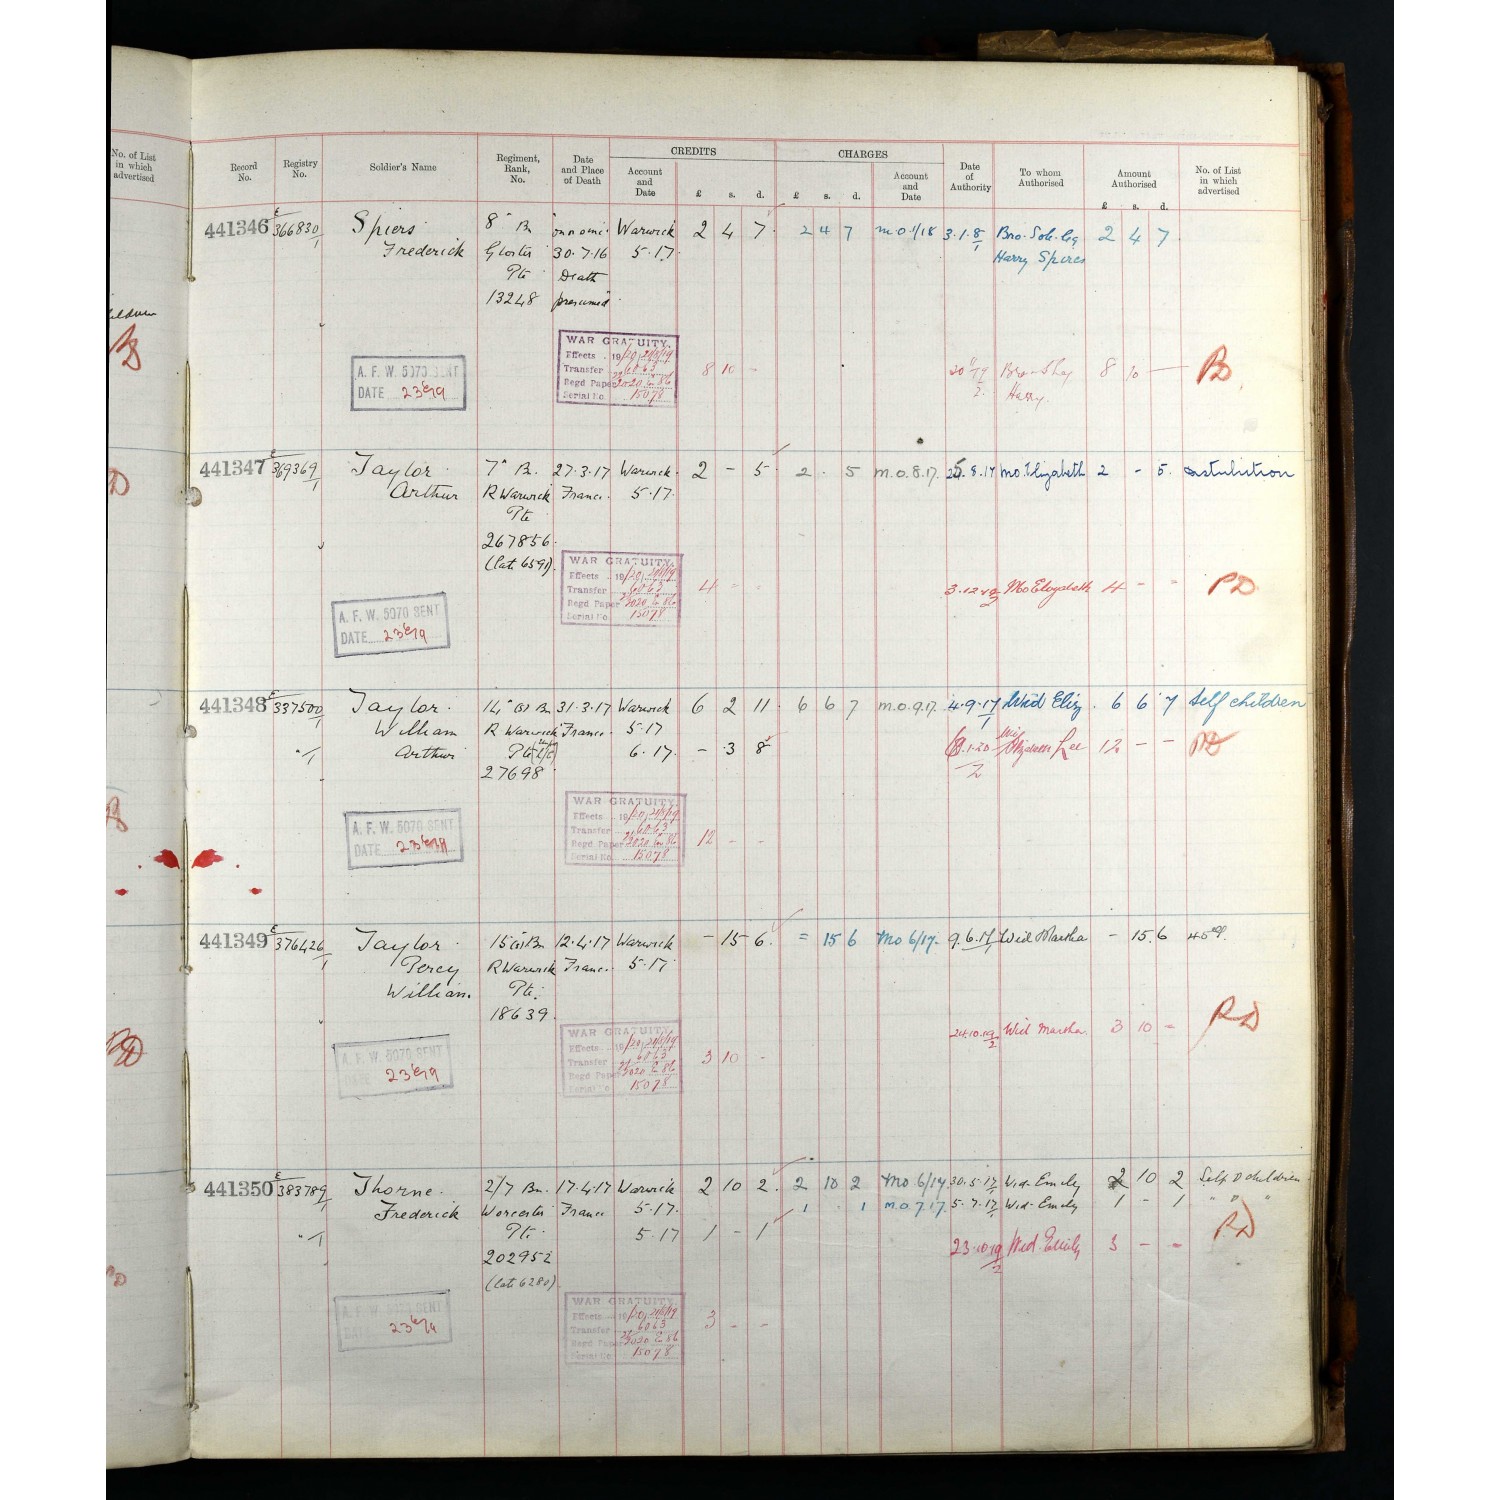 No. of List
in which
advertised
Record
No.
Registry
No.
Soldier's Name
Regiment,
Rank,
No.
Date
and Place
of Death
CREDITS
Account
and
Date
£ s. d.
CHARGES
£ s. d.
Account
and
Date
Date
of
Authority
To whom
Authorised
Amount
Authorised
£ s. d.
No. of List
in which
advertised
441346 E 366830/1 Spiers 8" Bn on or since Warwick 2 4 7 2 4 7 m.o.1/18 3.1.8/1 Bro. Sole Leg 2 4 7
Frederick Gloster 30.7.16 5.17. Harry Spires
Pte Death
13248 presumed
WAR GRATUITY.
Effects 19/20
Transfer 6063
Regd Paper
Serial No. 15078
8 10 -
Harry. 8 10 -
A. F. W. 5070 SENT
DATE 23/6/19
441347 E 369369/1 Taylor 7" Bn. 27.3.17 Warwick 2 - 5 2 . 5 m.o.8.17. 25.8.17 Mo. Elizabeth 2 - 5.
Arthur R Warwick France 5.17.
Pte
267856
(late 6591)
WAR GRATUITY.
Effects 19/20
Transfer 6063
Regd Paper
Serial No. 15078
4 - -
3.12.19/2 Mo Elizabeth 4 - - RD
A. F. W. 5070 SENT
DATE 23/6/19
441348 E 337500/1 Taylor 14" (S) Bn 31.3.17 Warwick 6 2 11 6 6 7 m.o.9.17. 4.9.17/1 Wid Eliz. 6 6 7 Self children
William R Warwick France 5.17
"/1 Arthur Pte 6.17. - 3 8 12 - -
27698
WAR GRATUITY.
Effects 19/20
Transfer 6063
Regd Paper
Serial No. 15078
12 - -
A. F. W. 5070 SENT
DATE 23/6/19
441349 E 376426/1 Taylor 15 (S) Bn 12.4.17 Warwick - 15 6 = 15 6 Mo 6/17. 9.6.17/1 Wid Martha - 15. 6
Percy R Warwick France 5.17
William. Pte.
18639.
24.10.19/2 Wid Martha. 3 10 - RD
WAR GRATUITY.
Effects 19/20
Transfer 6063
Regd Paper
Serial No. 15078
3 10 -
A. F. W. 5070 SENT
DATE 23/6/19
441350 E 383789/1 Thorne. 2/7 Bn. 17.4.17 Warwick 2 10 2. 2 10 2 Mo 6/17 30.5.17/1 Wid. Emily 2 10 2 Self & children
Frederick Worcester France 5.17. 1 . 1 m.o.7.17. 5.7.17/1 Wid. Emily 1 - 1 " " "
"/1 Pte. 5.17 1 - 1
202952 23.10.19/2 Wid. Emily 3 - - RD
(late 6280)
WAR GRATUITY.
Effects 19/20
Transfer 6063
Regd Paper
Serial No. 15078
3 - -
A. F. W. 5070 SENT
DATE 23/6/19